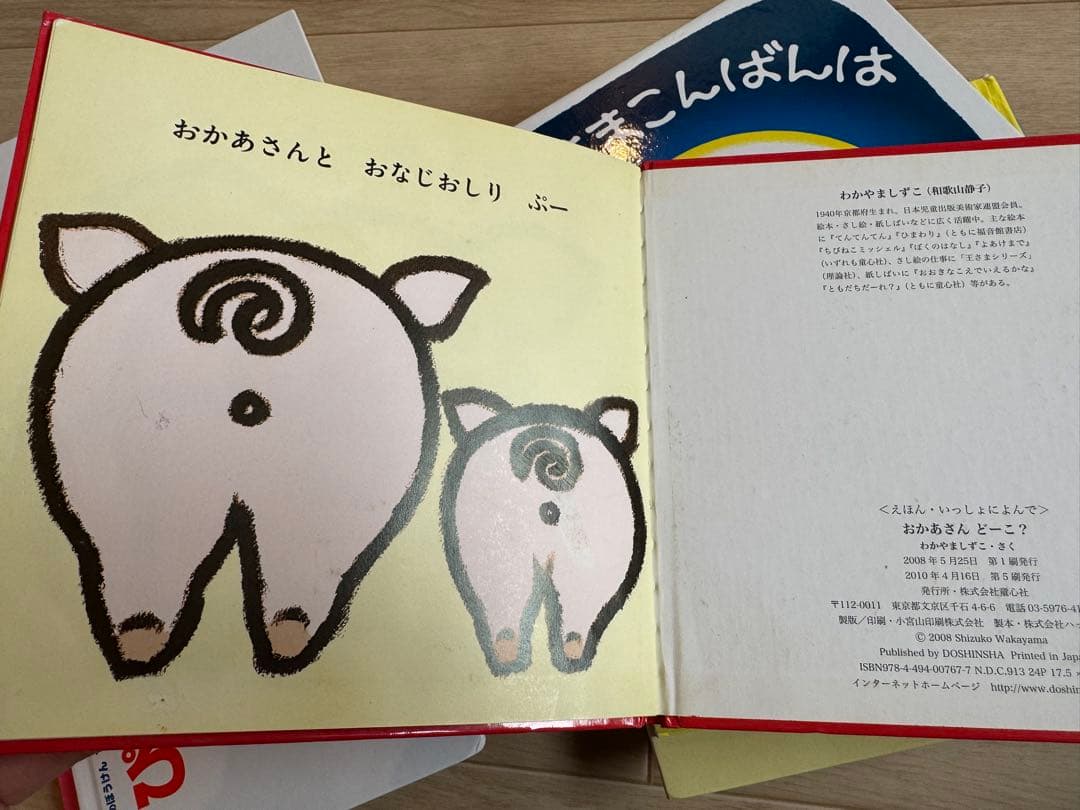 おかあさんと おなじおしり ぷー
きこんばんは
わかやましずこ(和歌山静子)
1940年京都府生まれ。日本児童出版美術家連盟会員。
絵本・さし絵・紙しばいなどに広く活躍中。主な絵本
に『てんてんてん』『ひまわり』(ともに福音館書店)
『ちびねこミッシェル』『ぼくのはなし』『よあけまで』
(いずれも童心社)、さし絵の仕事に「王さまシリーズ」
(理論社)、紙しばいに『おおきなこえでいえるかな』
『ともだちだーれ?』(ともに童心社)等がある。
<えほん・いっしょによんで>
おかあさん どーこ?
わかやましずこ・さく
2008年5月25日 第1刷発行
2010年4月16日 第5刷発行
発行所・株式会社童心社
〒112-0011 東京都文京区千石4-6-6 電話03-5976-41
製版/印刷・小宮山印刷株式会社 製本・株式会社ハッ
© 2008 Shizuko Wakayama
Published by DOSHINSHA Printed in Japa
ISBN978-4-494-00767-7 N.D.C.913 24P 17.5 ×
インターネットホームページ http://www.doshin
のぼうけん